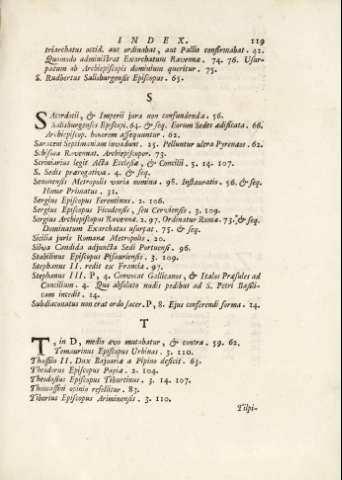 INDEX. 119
triarchatus occid. aut ordinabat, aut Pallio confirmabat. 42.
Quomodo administrat Exarchatum Ravennæ. 74. 76. Usur-
patum ab Archiepiscopis dominium queritur. 75.
S. Rudbertus Salisburgensis Episcopus. 65.
S
Sacerdotii, & Imperii jura non confundenda. 56.
Salisburgensis Episcopi. 64. & seq. Eorum Sedes ædificata. 66.
Archiepiscop. honorem assequuntur. 62.
Saraceni Septimaniam invadunt. 25. Pelluntur ultra Pyrenæos. 62.
Schisma Ravennat. Archiepiscopor. 73.
Scriniarius legit Acta Ecclesiæ, & Concilii. 5. 14. 107.
S. Sedis prærogativa. 4. & seq.
Senonensis Metropolis varia nomina. 98. Instauratio. 56. & seq.
Hinc Primatus. 31.
Sergius Episcopus Ferentinus. 2. 106.
Sergius Episcopus Ficudensis, seu Cerviensis. 3. 109.
Sergius Archiepiscopus Ravennæ. 2. 97. Ordinatur Romæ. 73. & seq.
Dominatum Exarchatus usurpat. 75. & seq.
Sicilia juris Romanæ Metropolis. 20.
Silva Candida adjuncta Sedi Portuensi. 96.
Stabilinus Episcopus Pisauriensis. 3. 109.
Stephanus II. redit ex Francia. 97.
Stephanus III. P, 4. Convocat Gallicanos, & Italos Præsules ad
Concilium. 4. Quo absoluto nudis pedibus ad S. Petri Basili-
cam incedit. 14.
Subdiaconatus non erat ordo sacer. P, 8. Ejus conferendi forma. 14.
T
T, in D, medio ævo mutabatur, & contra. 59. 62.
Temaurinus Episcopus Urbinas. 3. 110.
Thassilo II. Dux Bajoariæ a Pipino deficit. 63.
Theodorus Episcopus Papiæ. 2. 104.
Theodosius Episcopus Tiburtinus. 3. 14. 107.
Thomassini opinio refellitur. 83.
Tiberius Episcopus Ariminensis. 3. 110.
Tilpi-